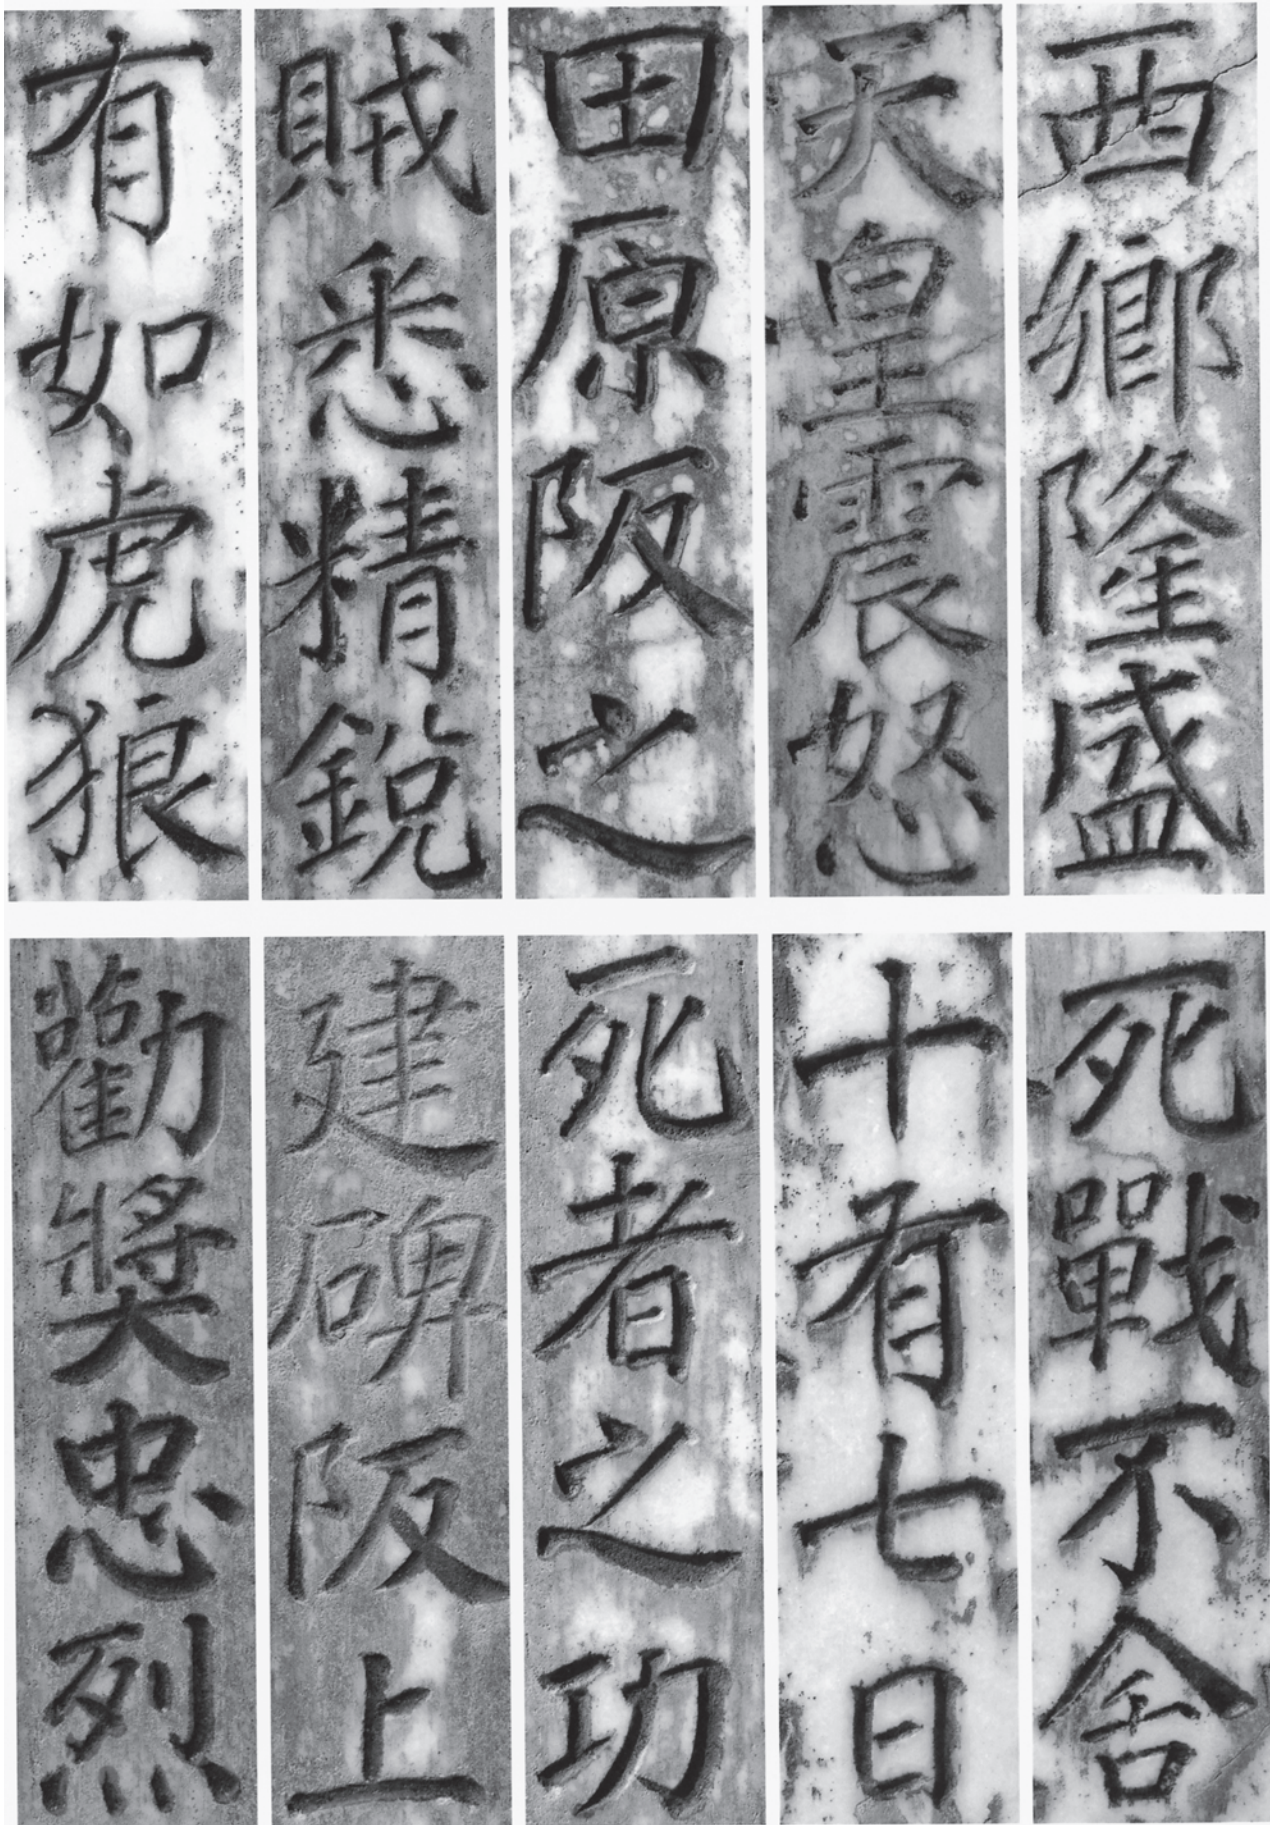 西鄉隆盛
天皇震怒
田原阪之
賊悉精銳
有如虎狼
死戰不舍
十有七日
死者之功
建碑阪上
勸奬忠烈